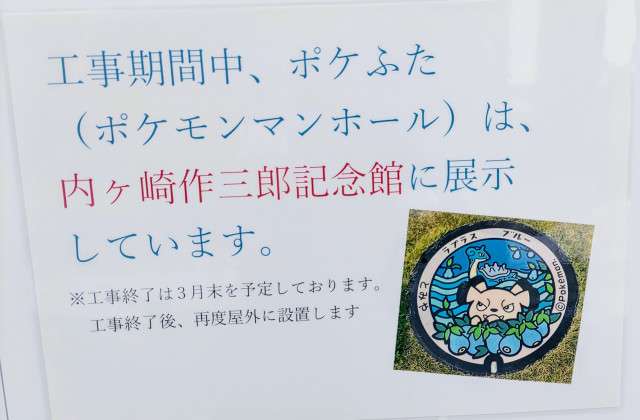 工事期間中、ポケふた
（ポケモンマンホール）は、
内ヶ崎作三郎記念館に展示
しています。
※工事終了は３月末を予定しております。
工事終了後、再度屋外に設置します
ラプラス ブルー
©Pokémon.